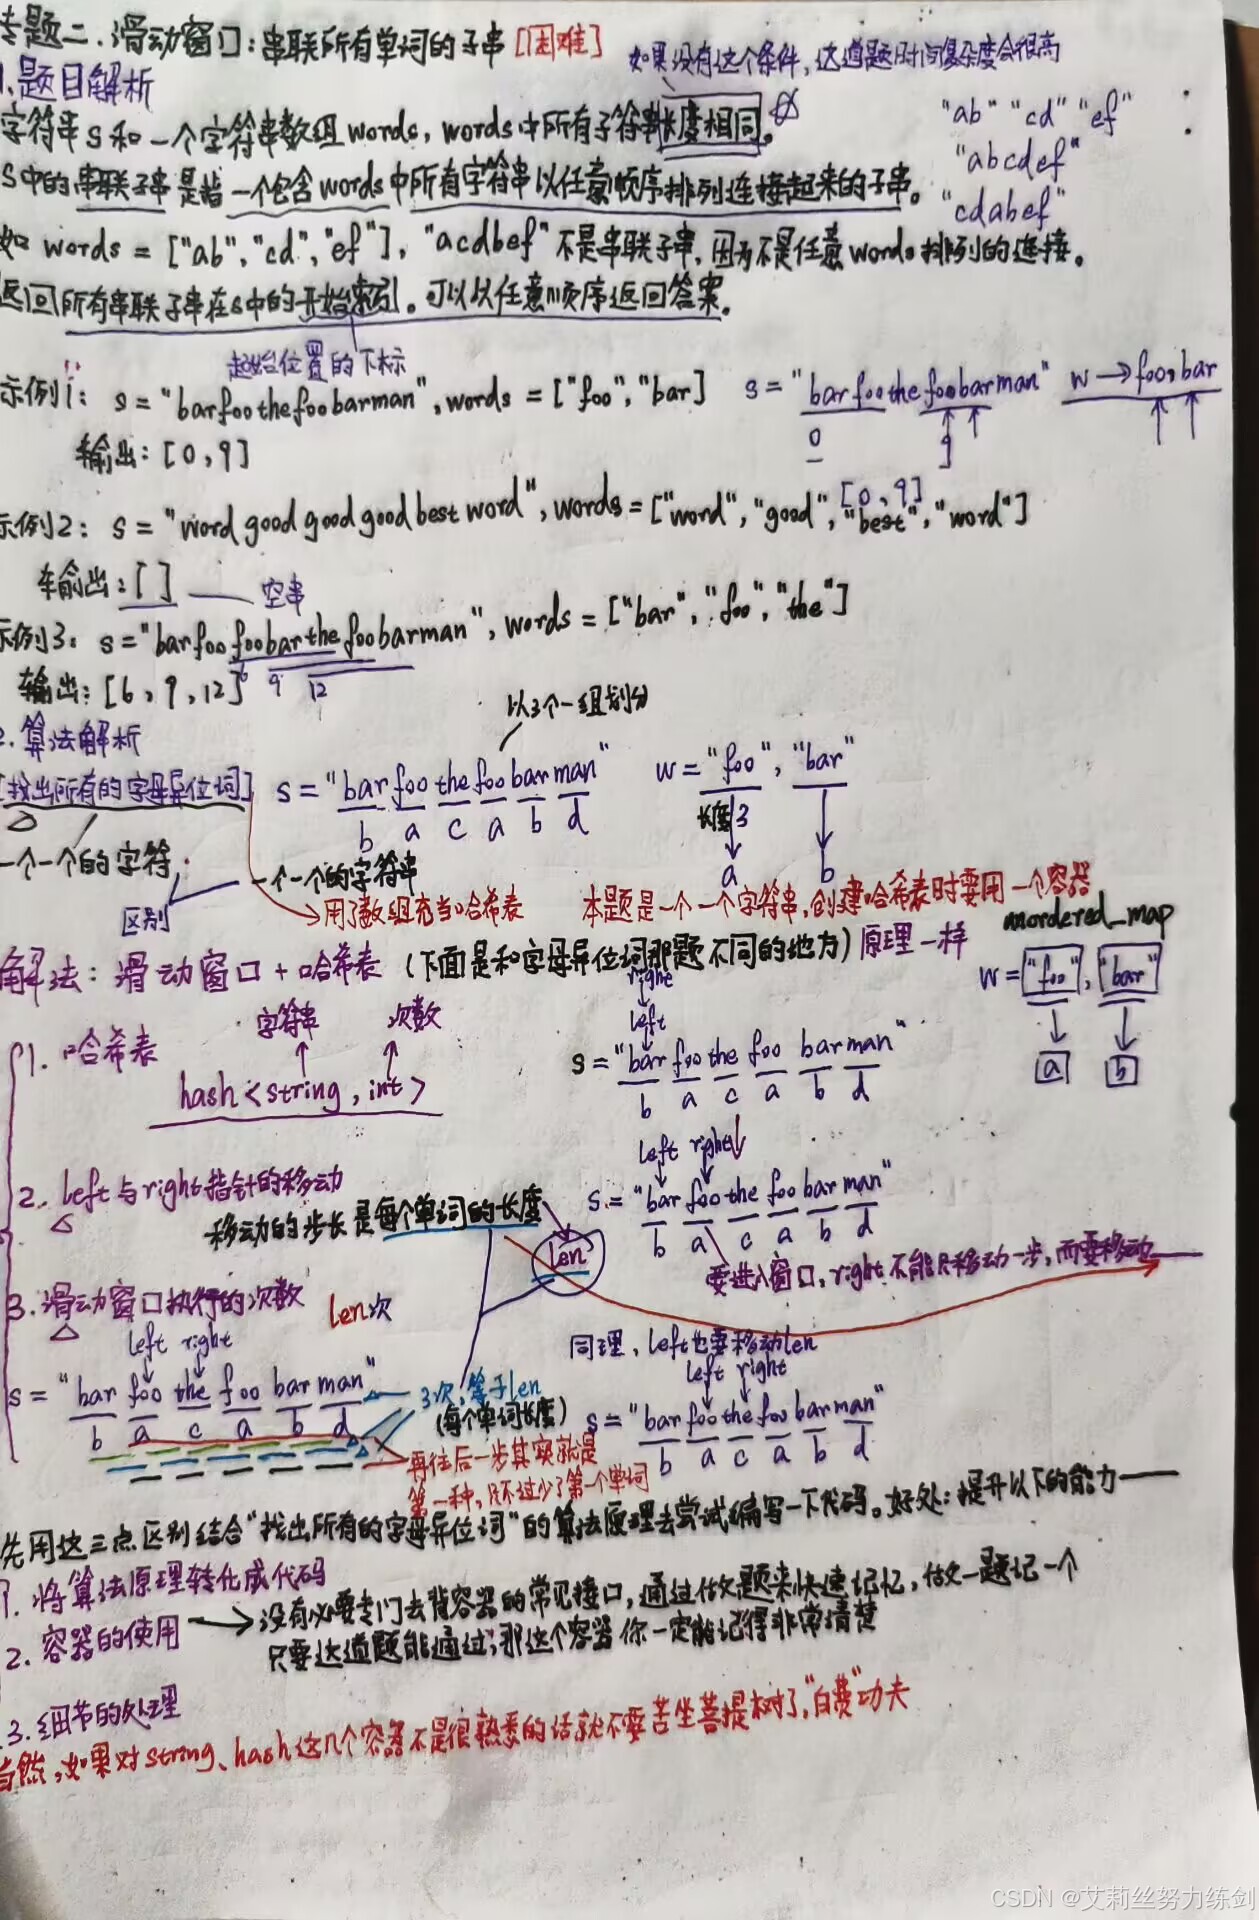 专题二.滑动窗口:串联所有单词的子串[困难]
如果没有这个条件,这道题时间复杂度会很高
1.题目解析
字符串s和一个字符串数组words,words中所有子符串长度相同。
"ab" "cd" "ef"
"abcdef"
"cdabef"
s中的串联子串是指一个包含words中所有字符串以任意顺序排列连接起来的子串。
如 words = ["ab","cd","ef"],"acdbef"不是串联子串,因为不是任意words排列的连接。
返回所有串联子串在s中的开始索引。可以以任意顺序返回答案。
起始位置的下标
示例1: s = "barfoothefoobarman",words = ["foo","bar]
s = "barfoothefoobarman" w→foo,bar
0 9
输出:[0,9]
[0,9]
示例2: s = "wordgoodgoodgoodbestword",words = ["word","good","best","word"]
输出:[ ] 空串
示例3: s="barfoofoobarthefoobarman",words = ["bar","foo","the"]
输出:[6,9,12] 6 9 12
以3个一组划分
2.算法解析
[找出所有的字母异位词] s = "bar foo the foo bar man" w = "foo","bar"
b a c a b d 长度3 a b
一个一个的字符 区别 一个一个的字符串
用了数组充当哈希表 本题是一个一个字符串,创建哈希表时要用一个容器
unordered_map
解法:滑动窗口+哈希表(下面是和字母异位词那题不同的地方)原理一样
w = "foo","bar"
a b
1.哈希表 字符串 次数
hash<string,int>
right
left
s = "bar foo the foo bar man"
b a c a b d
2.left与right指针的移动
移动的步长是每个单词的长度 len
left right
s = "bar foo the foo bar man"
b a c a b d
要进入窗口,right不能只移动一步,而要移动
3.滑动窗口执行的次数 len次
同理,left也要移动len
left right
s = "bar foo the foo bar man"
b a c a b d
3次,等于len
(每个单词长度)
left right
s = "bar foo the foo bar man"
b a c a b d
再往后一步其实就是
第一种,只不过少了第一个单词
先用这三点区别结合"找出所有的字母异位词"的算法原理去尝试编写一下代码。好处:提升以下的能力——
1.将算法原理转化成代码
2.容器的使用→没有必要专门去背容器的常见接口,通过做题来快速记忆,做一题记一个
只要这道题能通过,那这个容器你一定能记得非常清楚
3.细节的处理
当然,如果对string、hash这几个容器不是很熟悉的话就不要苦坐菩提树了,"白费"功夫
CSDN @艾莉丝努力练剑